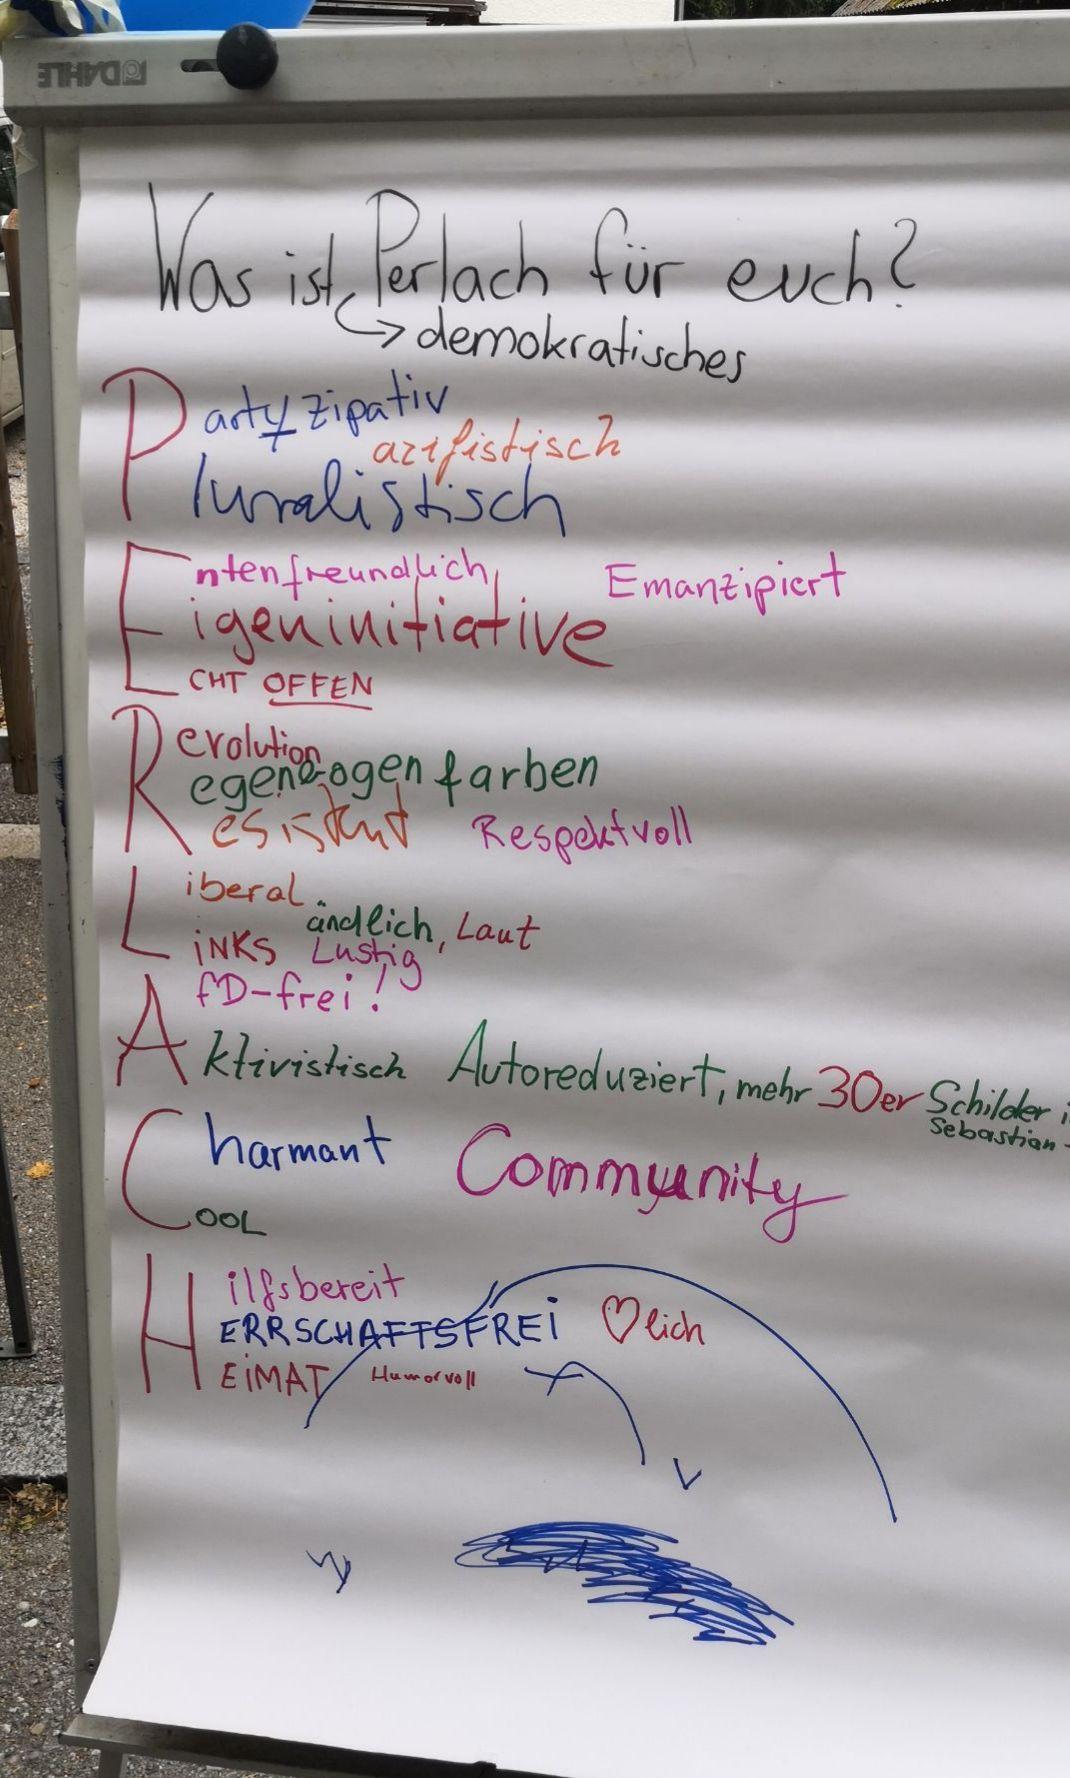 DAHLE
Was ist Perlach für euch?
demokratisches
Partyzipativ
azifistisch
Pluralistisch
Entenfreundlich Emanzipiert
Eigeninitiative
ECHT OFFEN
Revolution
Regenbogenfarben
Resistent Respektvoll
Liberal
ändlich, Laut
LiNKS Lustig
AfD-frei!
Aktivistisch Autoreduziert, mehr 30er Schilder
Sebastian-
Charmant Community
COOL
Hilfsbereit
HERRSCHAFTSFREi ♡lich
HEiMAT Humorvoll